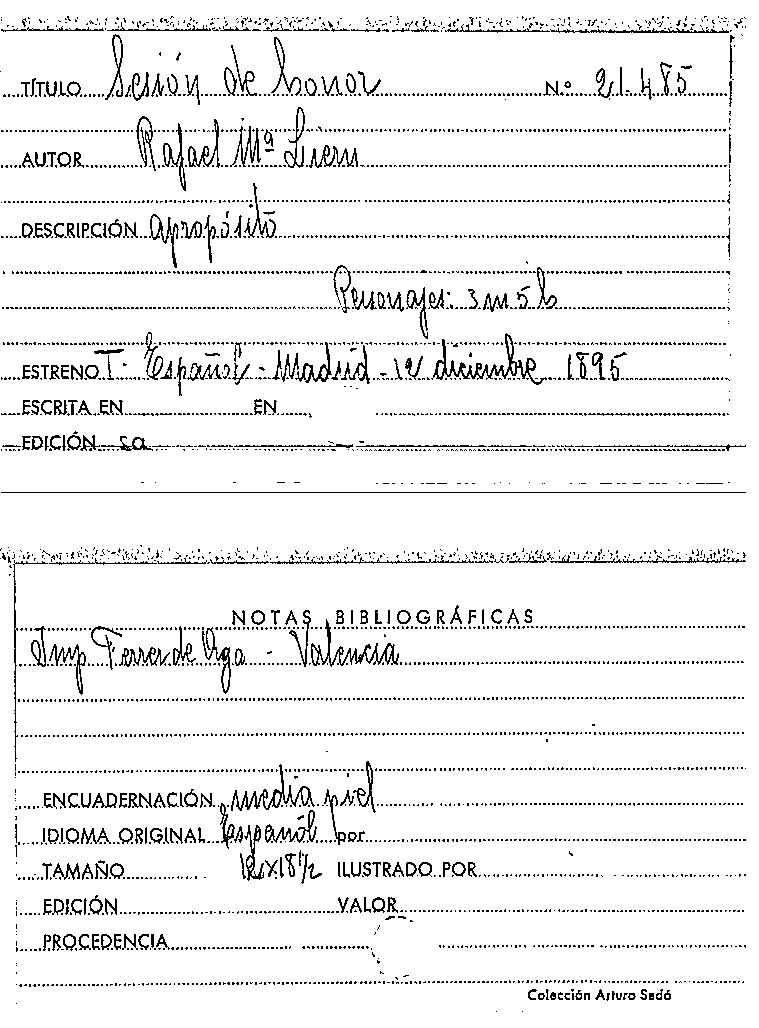 TÍTULO Sesión de honor N.º 21.485
AUTOR Rafael Mª Liern
DESCRIPCIÓN apropósito
Personajes: 3 m 5 h
ESTRENO T. Español - Madrid - 12 diciembre 1895
ESCRITA EN EN
EDICIÓN sa
NOTAS BIBLIOGRÁFICAS
Imp Ferrer de Orga - Valencia
ENCUADERNACIÓN media piel
IDIOMA ORIGINAL Español por
TAMAÑO 12x18½ ILUSTRADO POR
EDICIÓN VALOR
PROCEDENCIA
Colección Arturo Sedó